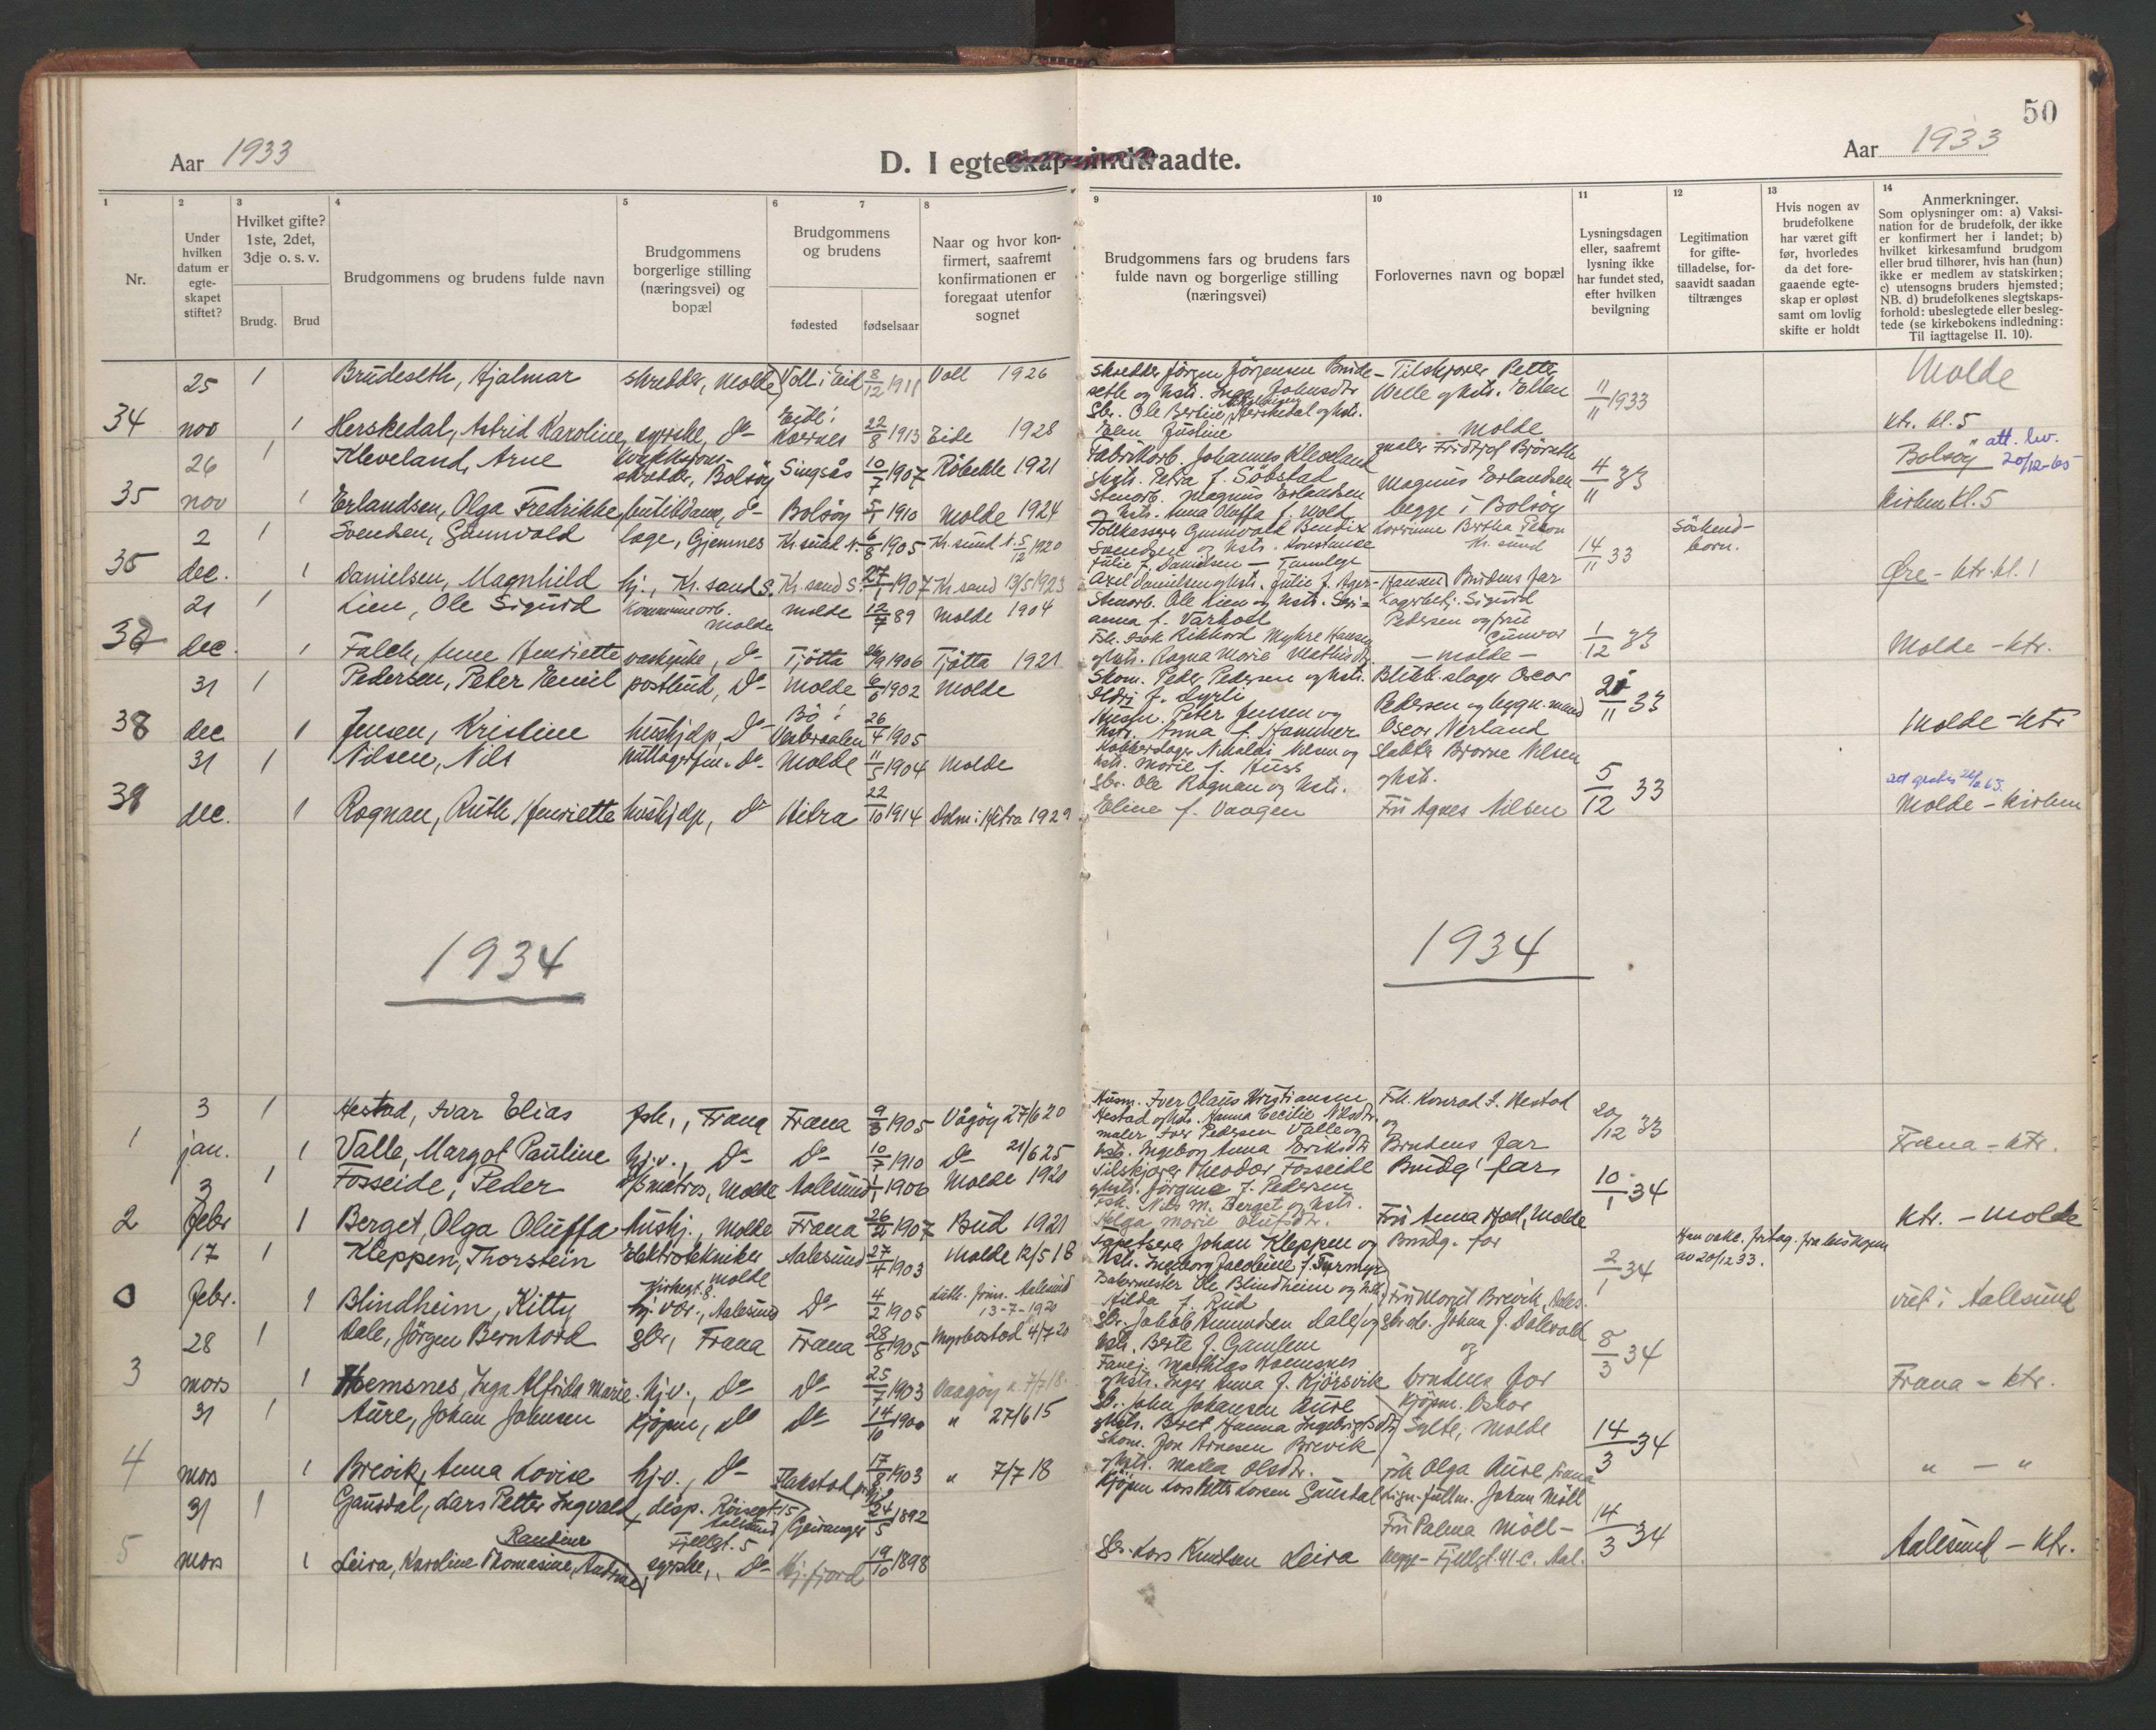 50
Aar 1933
D. I egteskap indtraadte.
Aar 1933
1
2
3
4
5
6
7
8
9
10
11
12
13
14
Nr.
Under hvilken datum er egte-skapet stiftet?
Hvilket gifte? 1ste, 2det, 3dje o. s. v.
Brudg.
Brud
Brudgommens og brudens fulde navn
Brudgommens borgerlige stilling (næringsvei) og bopæl
Brudgommens og brudens
fødested
fødselsaar
Naar og hvor kon-firmert, saafremt konfirmationen er foregaat utenfor sognet
Brudgommens fars og brudens fars fulde navn og borgerlige stilling (næringsvei)
Forlovernes navn og bopæl
Lysningsdagen eller, saafremt lysning ikke har fundet sted, efter hvilken bevilgning
Legitimation for gifte-tilladelse, for-saavidt saadan tiltrænges
Hvis nogen av brudefolkene har været gift før, hvorledes da det fore-gaaende egte-skap er opløst samt om lovlig skifte er holdt
Anmerkninger.
Som oplysninger om: a) Vaksi-nation for de brudefolk, der ikke er konfirmert her i landet; b) hvilket kirkesamfund brudgom eller brud tilhører, hvis han (hun) ikke er medlem av statskirken; c) utensogns bruders hjemsted; NB. d) brudefolkenes slegtskaps-forhold: ubeslegtede eller besleg-tede (se kirkebokens indledning: Til iagttagelse II. 10).
25 1 Brudeseth, Hjalmar skredder, Molde Voll i Eid 8/12 1911 Voll 1926 skredder Jörgen Jörgensen Brude- Tilskjærer Petter Molde
seth og hstr. Inga Johnsdtr Welle og hstr. Ellen 11/11 1933
34 nov 1 Herskedal, Astrid Karoline, syerske, do Eide i Kornes 22/8 1913 Eide 1928 Gbr. Ole Bertinus Herskedal og hstr. Elen Justine Molde ktr. kl. 5
26 1 Kleveland, Arne skredder, Bolsöy Singsås 10/7 1907 Röbekk 1921 Fabrikarb. Johannes Kleveland Fridtjof Björseth Bolsöy att. lev. 20/12-65
og hstr. Petra f. Söbstad Magnus Erlandsen 4/11 33
35 nov 1 Erlandsen, Olga Fredrikke, butikdame, do Bolsöy 5/1 1910 Molde 1924 Stenarb. Magnus Erlandsen og hstr. Anna Oluffa f. Wold begge i Bolsöy kirken kl. 5
2 1 Svendsen, Gunnvald læge, Gjemnes Kr.sund N. 6/8 1905 Kr.sund N. 5/12 1920 Tollkasserer Gunnvald Bendix Korrinne Bertha Söskend-born.
Svendsen og hstr. Konstanse Kr. sund 14/11 33
Julie f. Danielsen — Tannlege
36 dec. 1 Danielsen, Magnhild hj., Kr.sand S. Kr.sand S. 27/1 1907 Kr.sand 13/5 1923 Axel Danielsen og hstr. Julie f. Ager-Hansen Brudens far Øre - ktr. kl. 1
21 1 Lien, Ole Sigurd Kommunearb. Molde Molde 12/7 89 Molde 1904 Stenarb. Ole Lien og hstr. Seri- Lagerbetj. Sigurd
anna f. Varhol Pedersen og frue
37 dec. 1 Falch, Anne Henriette vaskepike, do Tjötta 26/9 1906 Tjötta 1921 Fsk. Isak Rikhard Myhre Hansen Gunvor 1/12 33 Molde - ktr.
og hstr. Ragna Marie Mathisdtr. - Molde -
31 1 Pedersen, Peter Emil postbud, do Molde 6/6 1902 Molde Skom. Peder Pedersen og hstr. Blikk.slager Oscar
Ildri f. Lyrli Pedersen og bygn. mand 21/11 33
38 dec 1 Jensen, Kristine hushjelp, do Bö i Vesteraalen 26/4 1905 Husm. Peter Jensen og hstr. Anna f. Hammer Oscar Nerland Molde - ktr
31 1 Nilsen, Nils do Molde 11/5 1904 Molde Kobberslager Nikolai Nilsen og Slakter Bjarne Nilsen
hstr. Marie f. Huss og hstr. 5/12 33
39 dec. 1 Rognan, Ruth Henriette hushjelp, do Hitra 22/10 1914 Dolm i Hitra 1929 Gbr. Ole Rognan og hstr. Eline f. Vaagen Fru Agnes Nilsen Molde - kirken
1934
1934
3 1 Hestad, Ivar Elias fsk., Fræna Fræna 9/3 1905 Vågöy 27/6 20 Husm. Iver Olaus Kristiansen Fsk. Konrad I. Hestad
Hestad og hstr. Hanna Cecilie Nilsdtr. og 20/12 33
1 jan. 1 Valle, Margot Pauline hj.v., do do 10/7 1910 do 21/6 25 maler Iver Pedersen Valle og hstr. Ingeborg Anna Eriksdtr Brudens far Fræna - ktr.
3 1 Fosseide, Peder matros, Molde Aalesund 1/1 1906 Molde 1920 Tilskjærer Theodor Fosseide Brudg' far
og hstr. Jörgine f. Pedersen 10/1 34
2 Febr 1 Berget, Olga Oluffa hushj., Molde Fræna 26/2 1907 Bud 1921 Fsk. Nils M. Berget og hstr. Helga Marie Olufsdtr. Fru Anna Hoel, Molde ktr. - Molde
17 1 Kleppen, Thorstein Elektrotekniker Molde Aalesund 27/4 1903 Molde 12/5 18 Tapetserer Johan Kleppen og Brudg. far av 20/12 33.
hstr. Ingeborg Jacobine f. Furmyr 2/1 34
0 Febr. 1 Blindheim, Kitty Kirkegt. 8. Aalesund do 4/2 1905 Aalesund 13-7-1920 Bakermester Ole Blindheim og hstr. Hilda f. Rud Fru Margit Brevik, Aales. viet i Aalesund
28 1 Dale, Jörgen Bernhard gbr., Fræna Fræna 28/8 1905 Myrbostad 4/7 20 Gbr. Jakob Amundsen Dale og Johan J. Dalevold
hstr. Berte f. Gamlem og 8/3 34
3 mars 1 Hoemsnes, Inga Alfrida Marie hj.v., do do 25/7 1903 Vaagöy 7/7 18 Mathias Hoemsnes og hstr. Inger Anna f. Kjörsvik brudens far Fræna - ktr.
31 1 Aure, Johan Johnsen kjöpm, do do 14/10 1900 " 27/6 15 Gbr. John Johansen Aure Kjöpm. Oskar
og hstr. Beret Hanna Ingebrigtsdtr Sylte, Molde 14/3 34
4 mars 1 Brevik, Anna Lovise hj.v., do Flakstad 17/8 1903 " 7/7 18 Skom. Jon Arnesen Brevik og hstr. Maka Olsdtr. Frk Olga Aure, Fræna " - "
31 1 Gausdal, Lars Petter Ingvald, disp. Röisegt. 15 Aalesund Geiranger 24/5 1892 Kjöpm Lars Petter Larsen Gausdal Lign.fullm. Johan Möll
Fru Palma Möll - 14/3 34
5 mars 1 Leira, Karoline Thomasine Andrine Rantine syerske, do Fjellgt. 5 Hj.fjord 19/10 1898 Gbr. Lars Knutsen Leira begge - Fjellgt. 41 C. Aal. Aalesund - ktr.